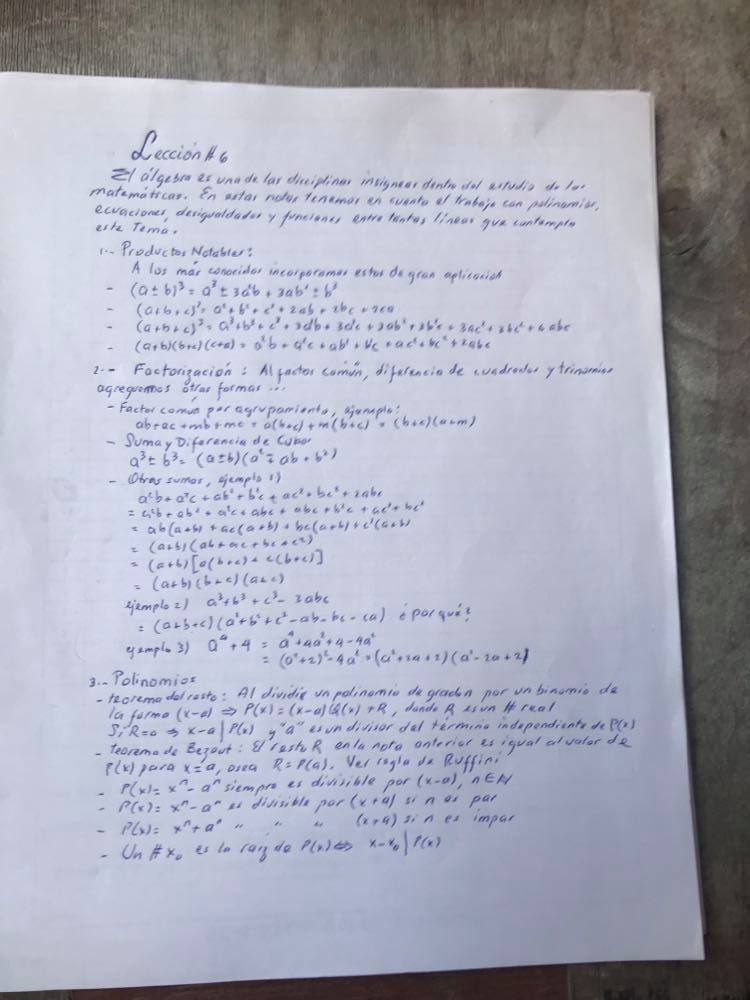 Lección # 6
El álgebra es una de las disciplinas insigneas dentro del estudio de las
matemáticas. En estas notas tenemos en cuenta el trabajo con polinomios,
ecuaciones, desigualdades y funciones entre tantas líneas que contempla
este Tema.
1.- Productos Notables:
A los más conocidos incorporamos estos de gran aplicación
- (a ± b)³ = a³ ± 3a²b + 3ab² ± b³
- (a+b+c)² = a² + b² + c² + 2ab + 2bc + 2ca
- (a+b+c)³ = a³ + b³ + c³ + 3a²b + 3a²c + 3ab² + 3b²c + 3ac² + 3bc² + 6abc
- (a+b)(b+c)(c+a) = a²b + a²c + ab² + b²c + ac² + bc² + 2abc
2.- Factorización: Al factor común, diferencia de cuadrados y trinomios
agreguemos otras formas ...
- Factor común por agrupamiento, ejemplo:
ab + ac + mb + mc = a(b+c) + m(b+c) = (b+c)(a+m)
- Suma y Diferencia de Cubos
a³ ± b³ = (a ± b)(a² ∓ ab + b²)
- Otras sumas, ejemplo 1)
a²b + a²c + ab² + b²c + ac² + bc² + 2abc
= a²b + ab² + a²c + abc + abc + b²c + ac² + bc²
= ab(a+b) + ac(a+b) + bc(a+b) + c²(a+b)
= (a+b)(ab + ac + bc + c²)
= (a+b)[a(b+c) + c(b+c)]
= (a+b)(b+c)(a+c)
ejemplo 2) a³ + b³ + c³ - 3abc
= (a+b+c)(a² + b² + c² - ab - bc - ca) ¿por qué?
ejemplo 3) a⁴ + 4 = a⁴ + 4a² + 4 - 4a²
= (a²+2)² - 4a² = (a² + 2a + 2)(a² - 2a + 2)
3.- Polinomios
- teorema del resto: Al dividir un polinomio de grado n por un binomio de
la forma (x-a) ⇒ P(x) = (x-a)Q(x) + R, donde R es un # real
Si R=0 ⇒ x-a | P(x) y "a" es un divisor del término independiente de P(x)
- teorema de Bezout: El resto R en la nota anterior es igual al valor de
P(x) para x=a, osea R = P(a). Ver regla de Ruffini
- P(x) = xⁿ - aⁿ siempre es divisible por (x-a), n∈N
- P(x) = xⁿ - aⁿ es divisible por (x+a) si n es par
- P(x) = xⁿ + aⁿ " " " (x+a) si n es impar
- Un # x₀ es la raíz de P(x) ⇔ x-x₀ | P(x)